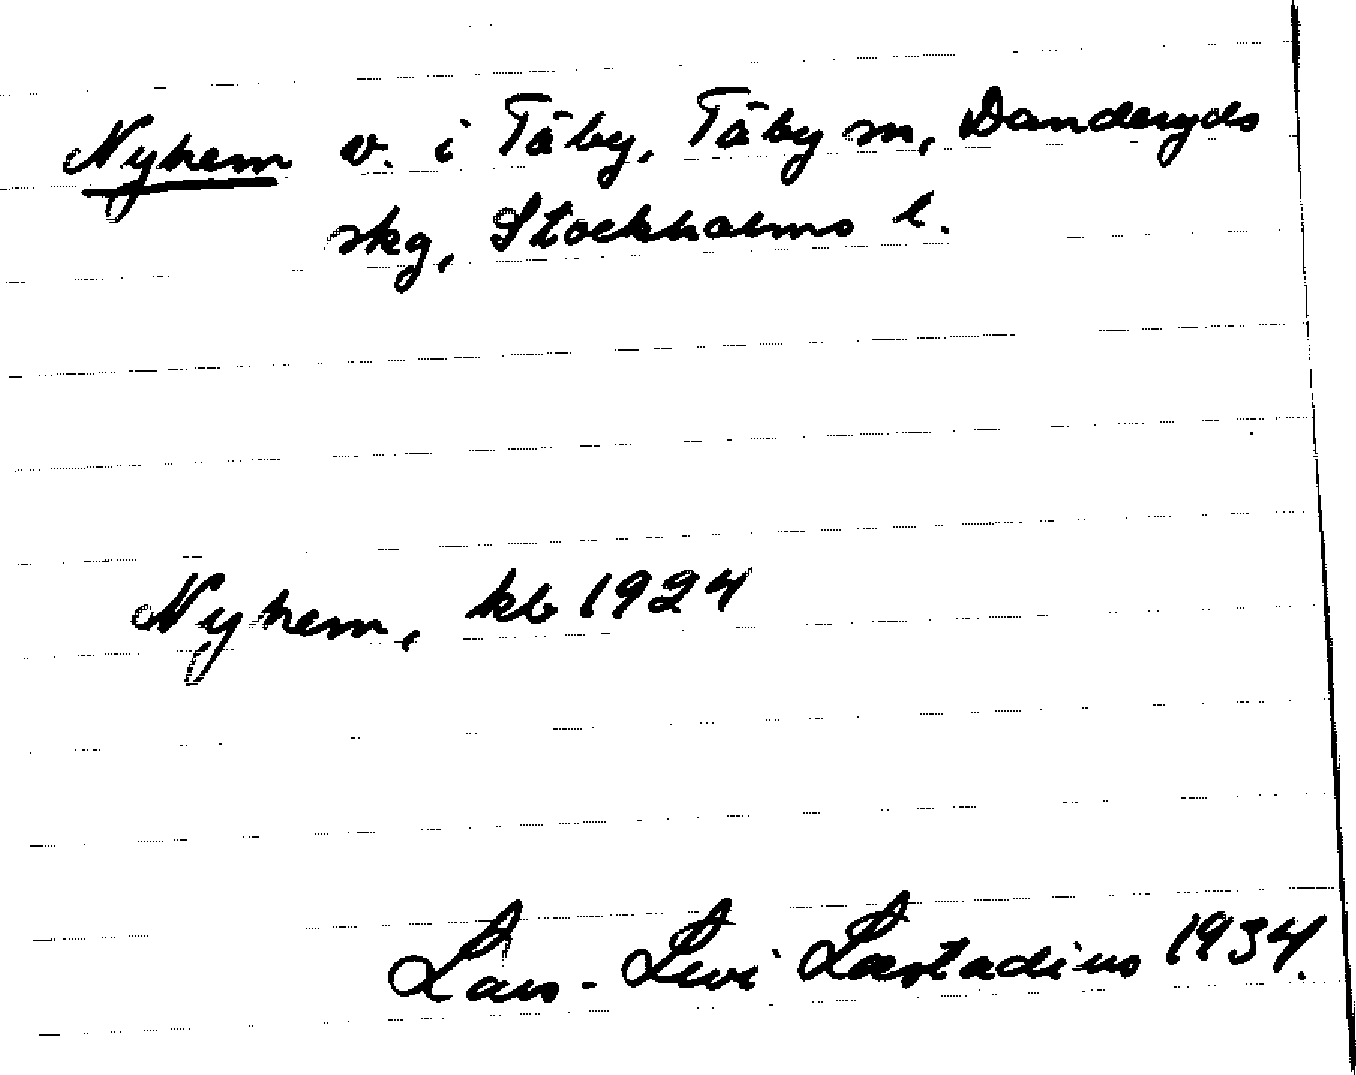 Nyhem v. i Täby, Täby sn, Danderyds
skg, Stockholms l.
Nyhem, kb 1924
Lars-Levi Læstadius 1934.